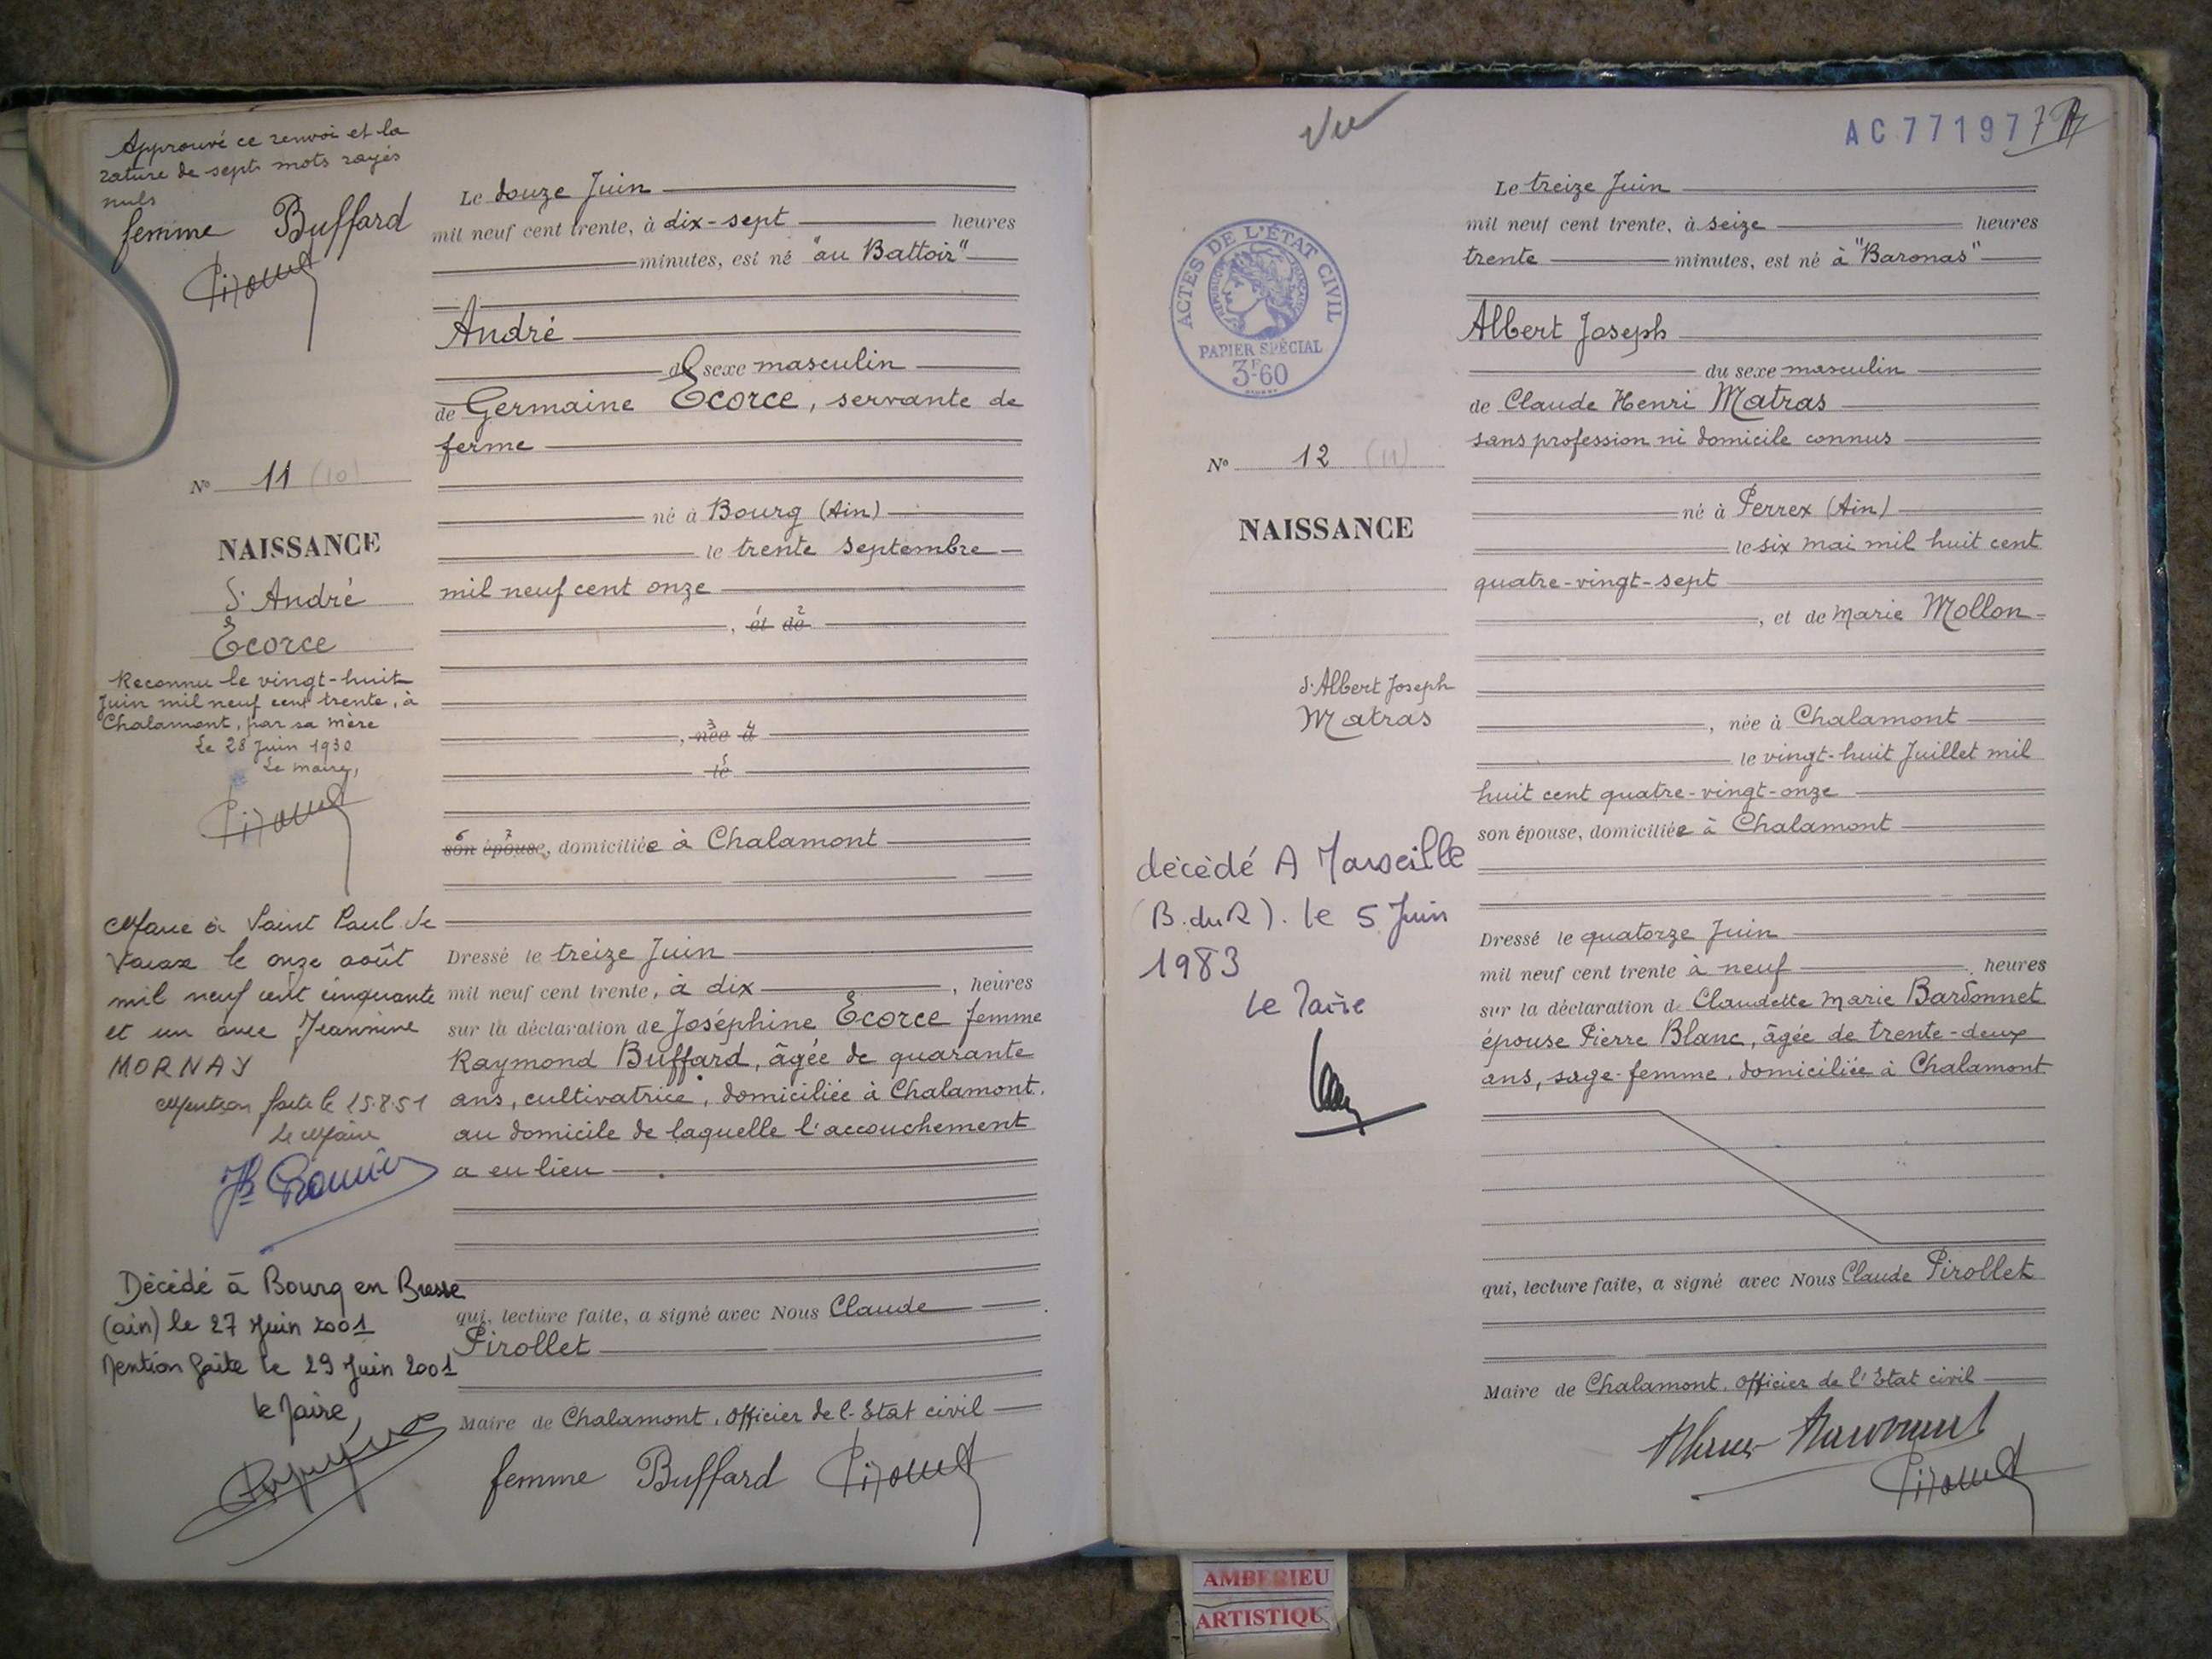 Approuvé ce renvoi et la
rature de sept mots rayés
nuls
femme Buffard
Le douze Juin
mil neuf cent trente, à dix-sept heures
minutes, est né "au Battoir"
André
du sexe masculin
de Germaine Ecorce, servante de
ferme
né à Bourg (Ain)
le trente Septembre
mil neuf cent onze
, et de
, née à
le
son épouse, domiciliée à Chalamont
Dressé le treize Juin
mil neuf cent trente, à dix, heures
sur la déclaration de Joséphine Ecorce femme
Raymond Buffard, âgée de quarante
ans, cultivatrice, domiciliée à Chalamont,
au domicile de laquelle l'accouchement
a eu lieu
qui, lecture faite, a signé avec Nous Claude
Pirollet
Maire de Chalamont, Officier de l'Etat civil
femme Buffard
No 11 (10)
NAISSANCE
d'André
Ecorce
Reconnu le vingt-huit
Juin mil neuf cent trente, à
Chalamont, par sa mère
Le 28 Juin 1930
Le maire,
Marié à Saint Paul de
Varax le onze août
mil neuf cent cinquante
et un avec Jeannine
MORNAY
Mention faite le 15.8.51
le Maire
Décédé à Bourg en Bresse
(ain) le 27 Juin 2001
Mention faite le 29 Juin 2001
le Maire,
Vu
AC 77197
ACTES DE L'ÉTAT CIVIL
RÉPUBLIQUE FRANÇAISE
PAPIER SPÉCIAL
3F-60
Le treize Juin
mil neuf cent trente, à seize heures
trente minutes, est né à "Baronas"
Albert Joseph
du sexe masculin
de Claude Henri Matras
sans profession ni domicile connus
né à Perrex (Ain)
le six mai mil huit cent
quatre-vingt-sept
, et de Marie Mollon
, née à Chalamont
le vingt-huit Juillet mil
huit cent quatre-vingt-onze
son épouse, domiciliée à Chalamont
Dressé le quatorze Juin
mil neuf cent trente à neuf heures
sur la déclaration de Claudette Marie Bardonnet
épouse Pierre Blanc, âgée de trente-deux
ans, sage-femme, domiciliée à Chalamont
qui, lecture faite, a signé avec Nous Claude Pirollet
Maire de Chalamont, Officier de l'Etat civil
No 12 (11)
NAISSANCE
d'Albert Joseph
Matras
décédé A Marseille
(B. du R). le 5 Juin
1983
Le Maire
AMBERIEU
ARTISTIQU